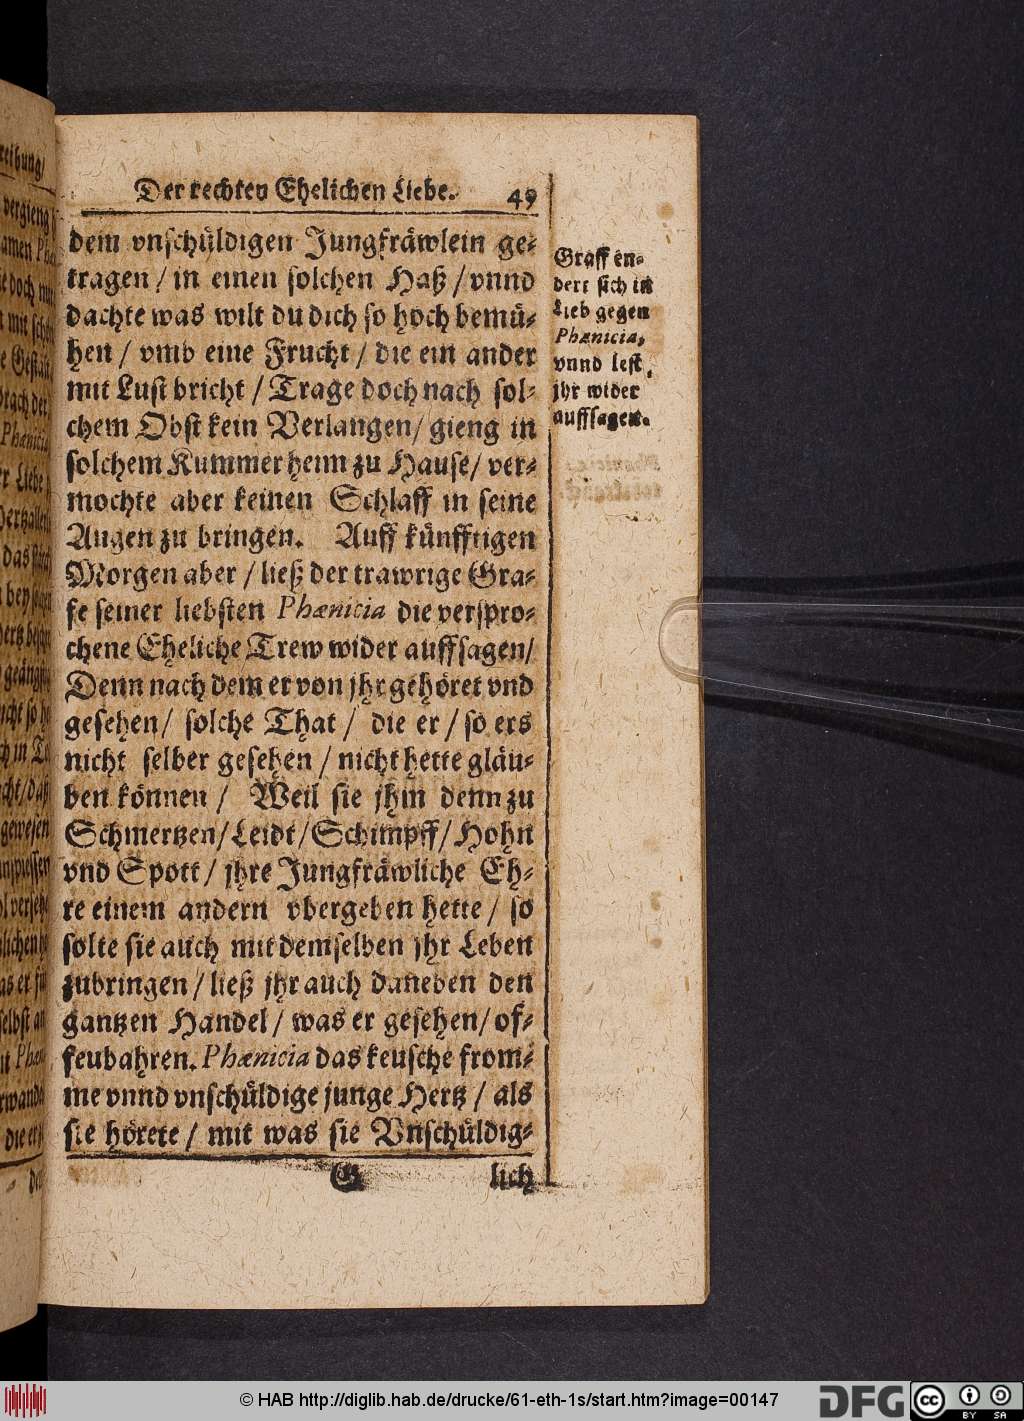 Der rechten Ehelichen Liebe. 49
dem vnschuͤldigen Jungfraͤwlein ge⸗
tragen / in einen solchen Haß / vnnd
dachte was wilt du dich so hoch bemuͤ⸗
hen / vmb eine Frucht / die ein ander
mit Lust bricht / Trage doch nach sol⸗
chem Obst kein Verlangen / gieng in
solchem Kummer heim zu Hause / ver⸗
mochte aber keinen Schlaff in seine
Augen zu bringen. Auff kuͤnfftigen
Morgen aber / ließ der trawrige Gra⸗
fe seiner liebsten Phænicia die verspro⸗
chene Eheliche Trew wider auffsagen /
Denn nach dem er von jhr gehoͤret vnd
gesehen / solche That / die er / so ers
nicht selber gesehen / nicht hette glaͤu⸗
ben koͤnnen / Weil sie jhm denn zu
Schmertzen / Leidt / Schimpff / Hohn
vnd Spott / jhre Jungfraͤwliche Eh⸗
re einem andern vbergeben hette / so
solte sie auch mit demselben jhr Leben
zubringen / ließ jhr auch daneben den
gantzen Handel / was er gesehen / of⸗
feubahren. Phænicia das keusche from⸗
me vnnd vnschuͤldige junge Hertz / als
sie hoͤrete / mit was sie Vnschuͤldig⸗
G lich
Graff en⸗
dert sich in
Lieb gegen
Phænicia,
vnnd lest
jhr wider
auffsagen.
© HAB http://diglib.hab.de/drucke/61-eth-1s/start.htm?image=00147
DFG
cc BY SA